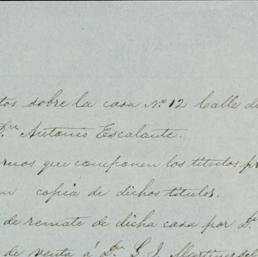 tos sobre la casa No. 12 Calle de
Dn. Antonio Escalante.
que componen los titulos
copia de dichos titulos.
de remate de dicha casa por D.
de venta á Dn. G. J. Martinez del